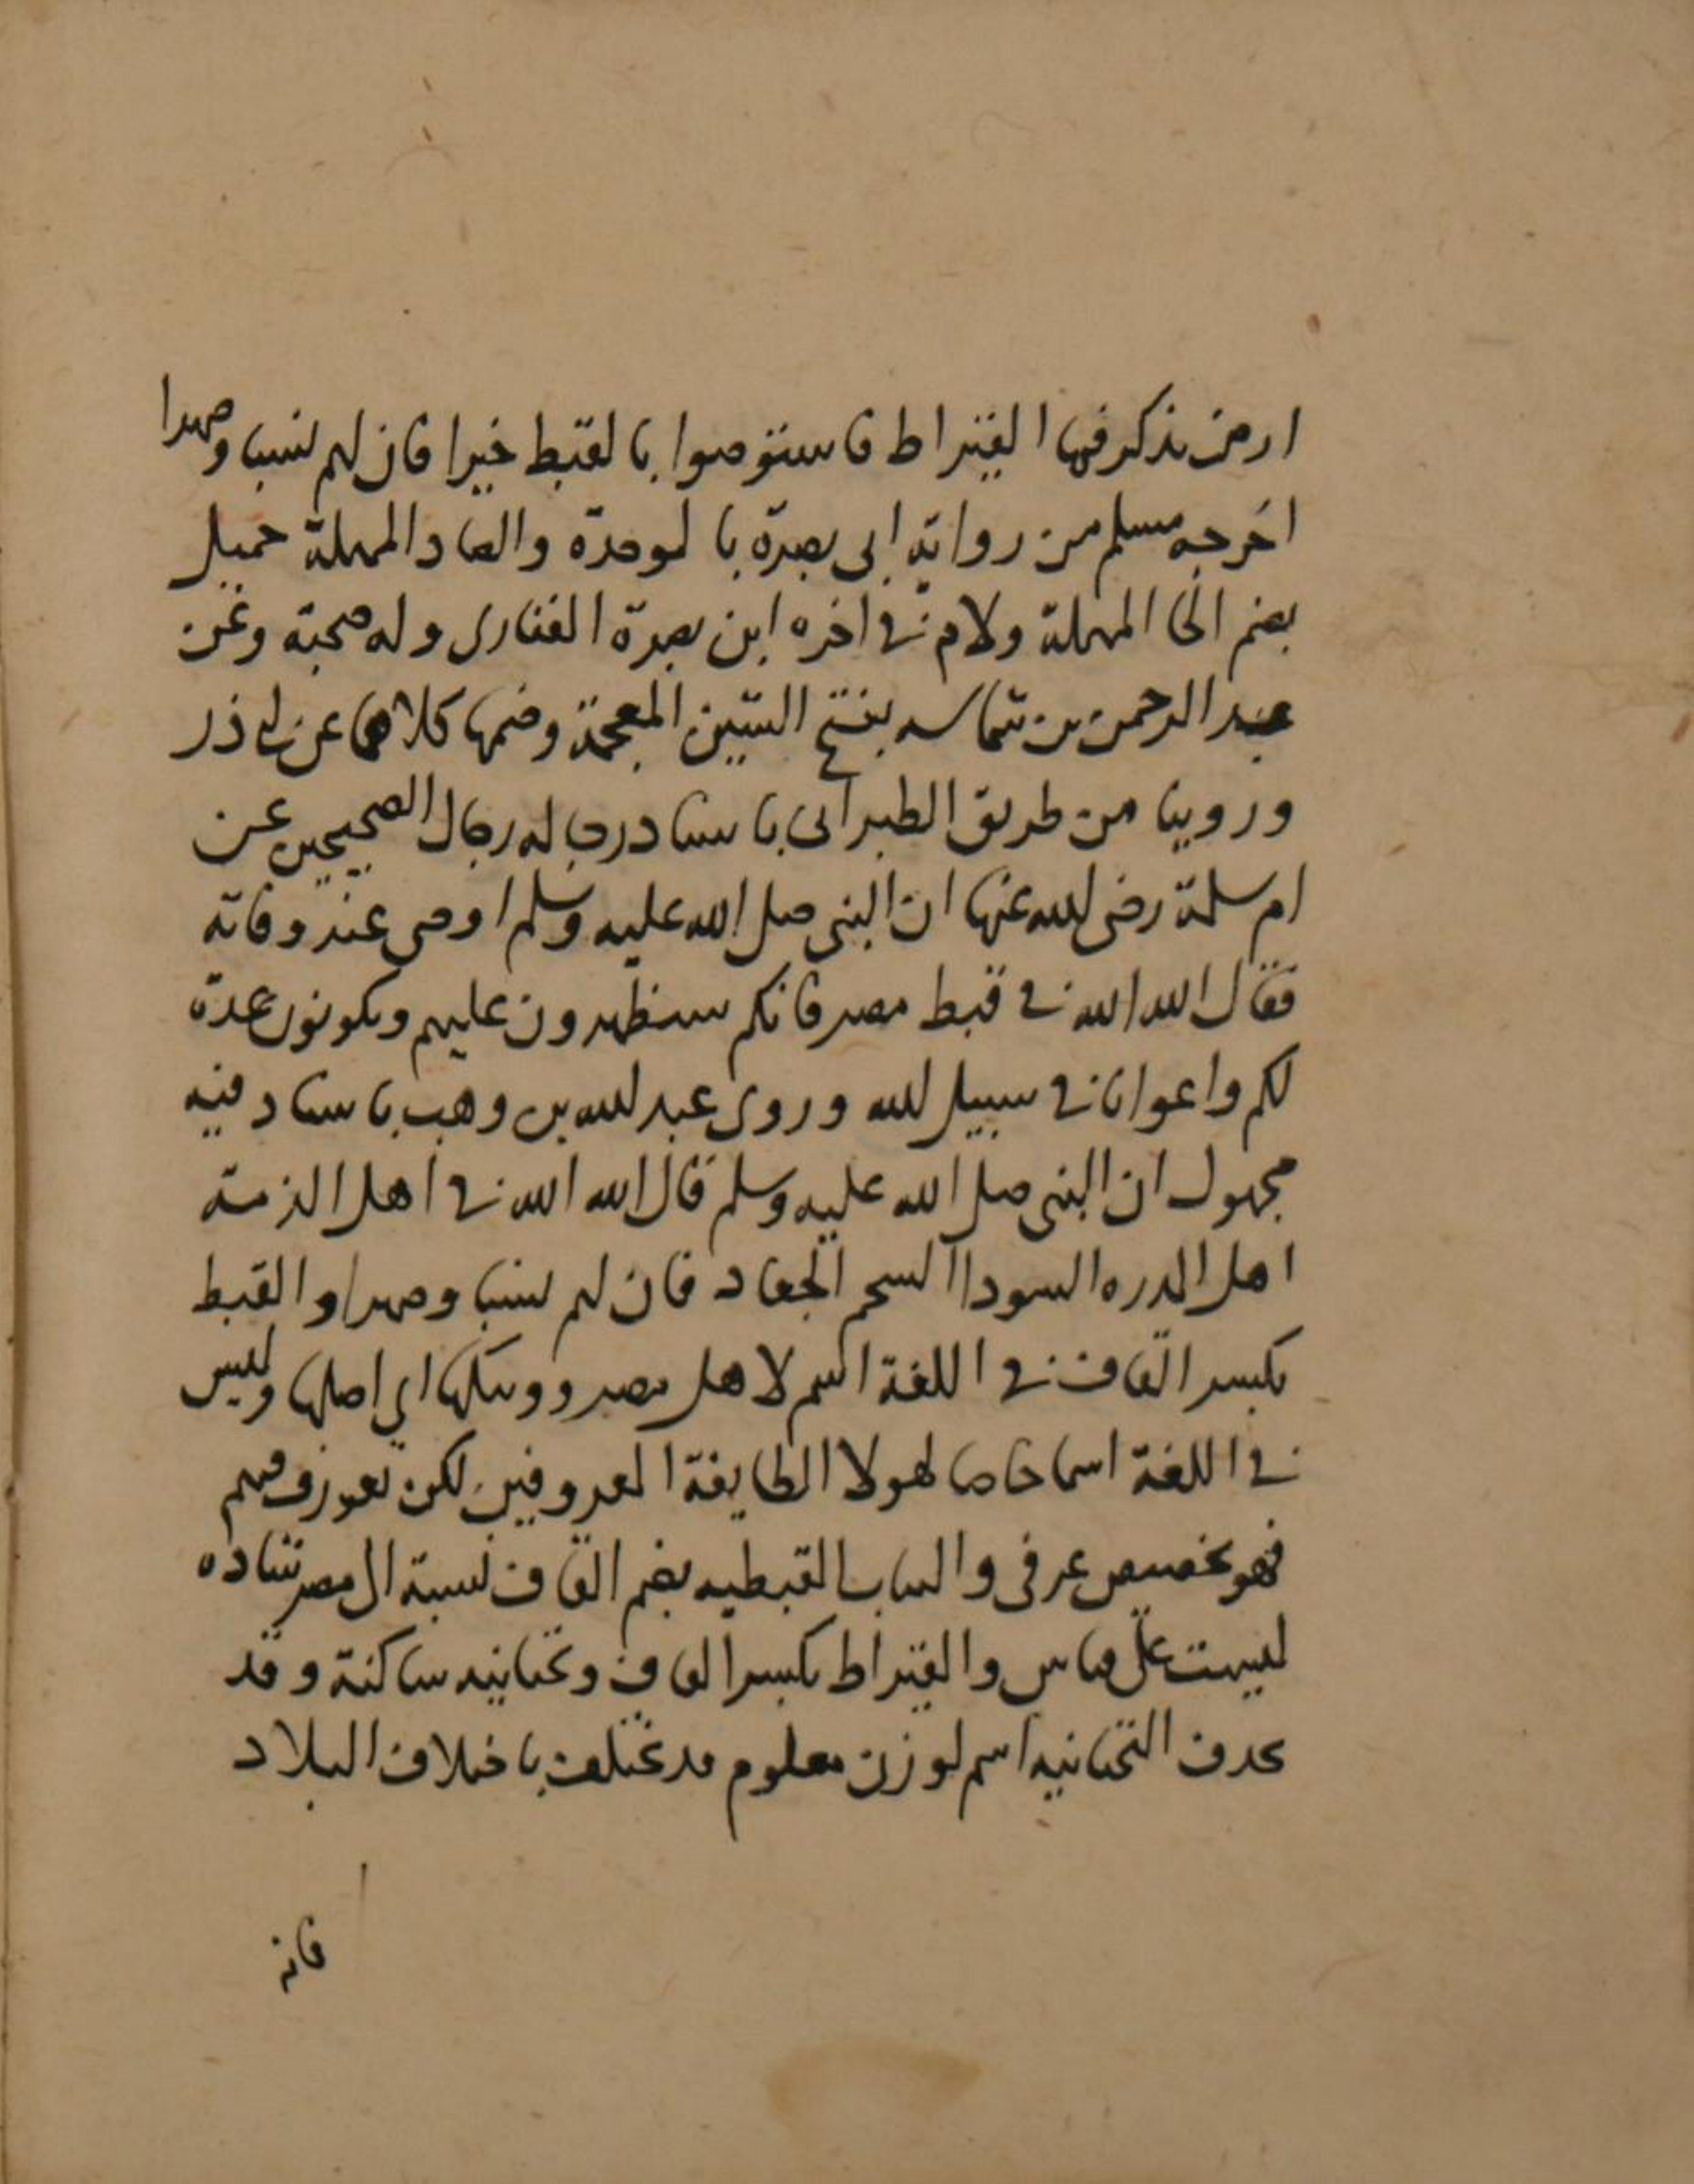 ارض يذكر فيها القيراط فاستوصوا بالقبط خيرا فان لهم نسبا وصهرا
اخرجه مسلم من رواية ابى بصرة بالموحدة والصاد المهملة حميل
بضم الحا المهملة ولام فى اخره ابن بصرة الغفارى وله صحبة وعن
عبد الرحمن بن شماسه بفتح الشين المعجمة وضمها كلاهما عن ابى ذر
وروينا من طريق الطبرانى باسناد رجاله رجال الصحيحين عن
ام سلمة رضى الله عنها ان النبى صلى الله عليه وسلم اوصى عند وفاته
فقال الله الله فى قبط مصر فانكم ستظهرون عليهم ويكونون عدة
لكم واعوانا فى سبيل الله وروى عبد الله بن وهب باسناد فيه
مجهول ان النبى صلى الله عليه وسلم قال الله الله فى اهل الذمة
اهل المدره السودا السحم الجعاد فان لهم نسبا وصهرا والقبط
بكسر القاف فى اللغة اسم لاهل مصر وبنكها اي اصلها وليس
فى اللغة اسما خاصا لهولا الطايفة المعروفين لكن تعورف فيهم
فهو تخصيص عرفى والثياب القبطيه بضم القاف نسبة الى مصر شاده
ليست على قياس والقيراط بكسر القاف وتحتانيه ساكنة وقد
تحدف التحتانيه اسم لوزن معلوم قد يختلف باختلاف البلاد
فانه